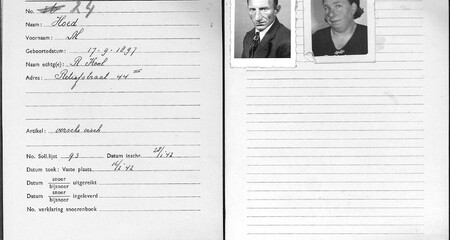 No. 24
Naam: Hoed
Voornaam: M
Geboortedatum: 17-9-1897
Naam echtg(e): R Kool
Adres: Retiefstraat 44 III
Artikel: versche visch
No. Soll.lijst 93 Datum inschr. /42
Datum toek: Vaste plaats /42
Datum snoer bijsnoer uitgereikt
Datum snoer bijsnoer ingeleverd
No. verklaring snoerenboek